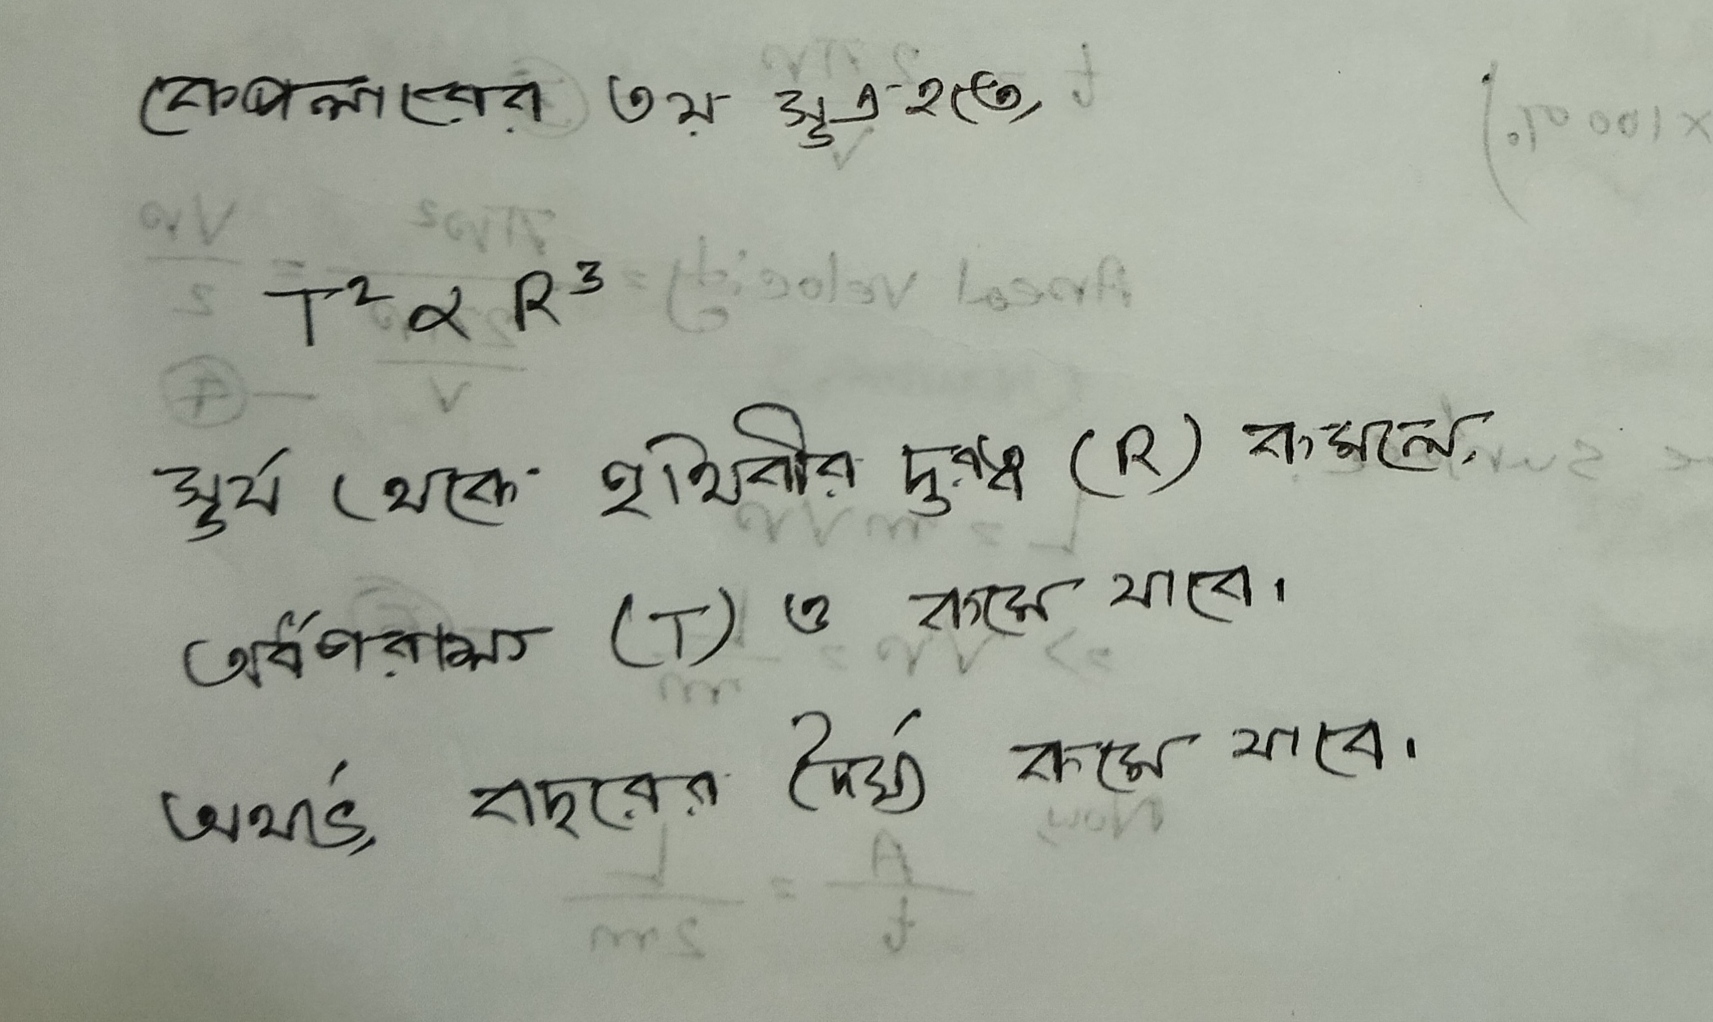 কেপলারের ৩য় সূত্র হতে,
T² ∝ R³
সূর্য থেকে পৃথিবীর দুরত্ব (R) কমলে,
(T) ও কমে যাবে।
অর্থাৎ, বছরের দৈর্ঘ্য কমে যাবে।